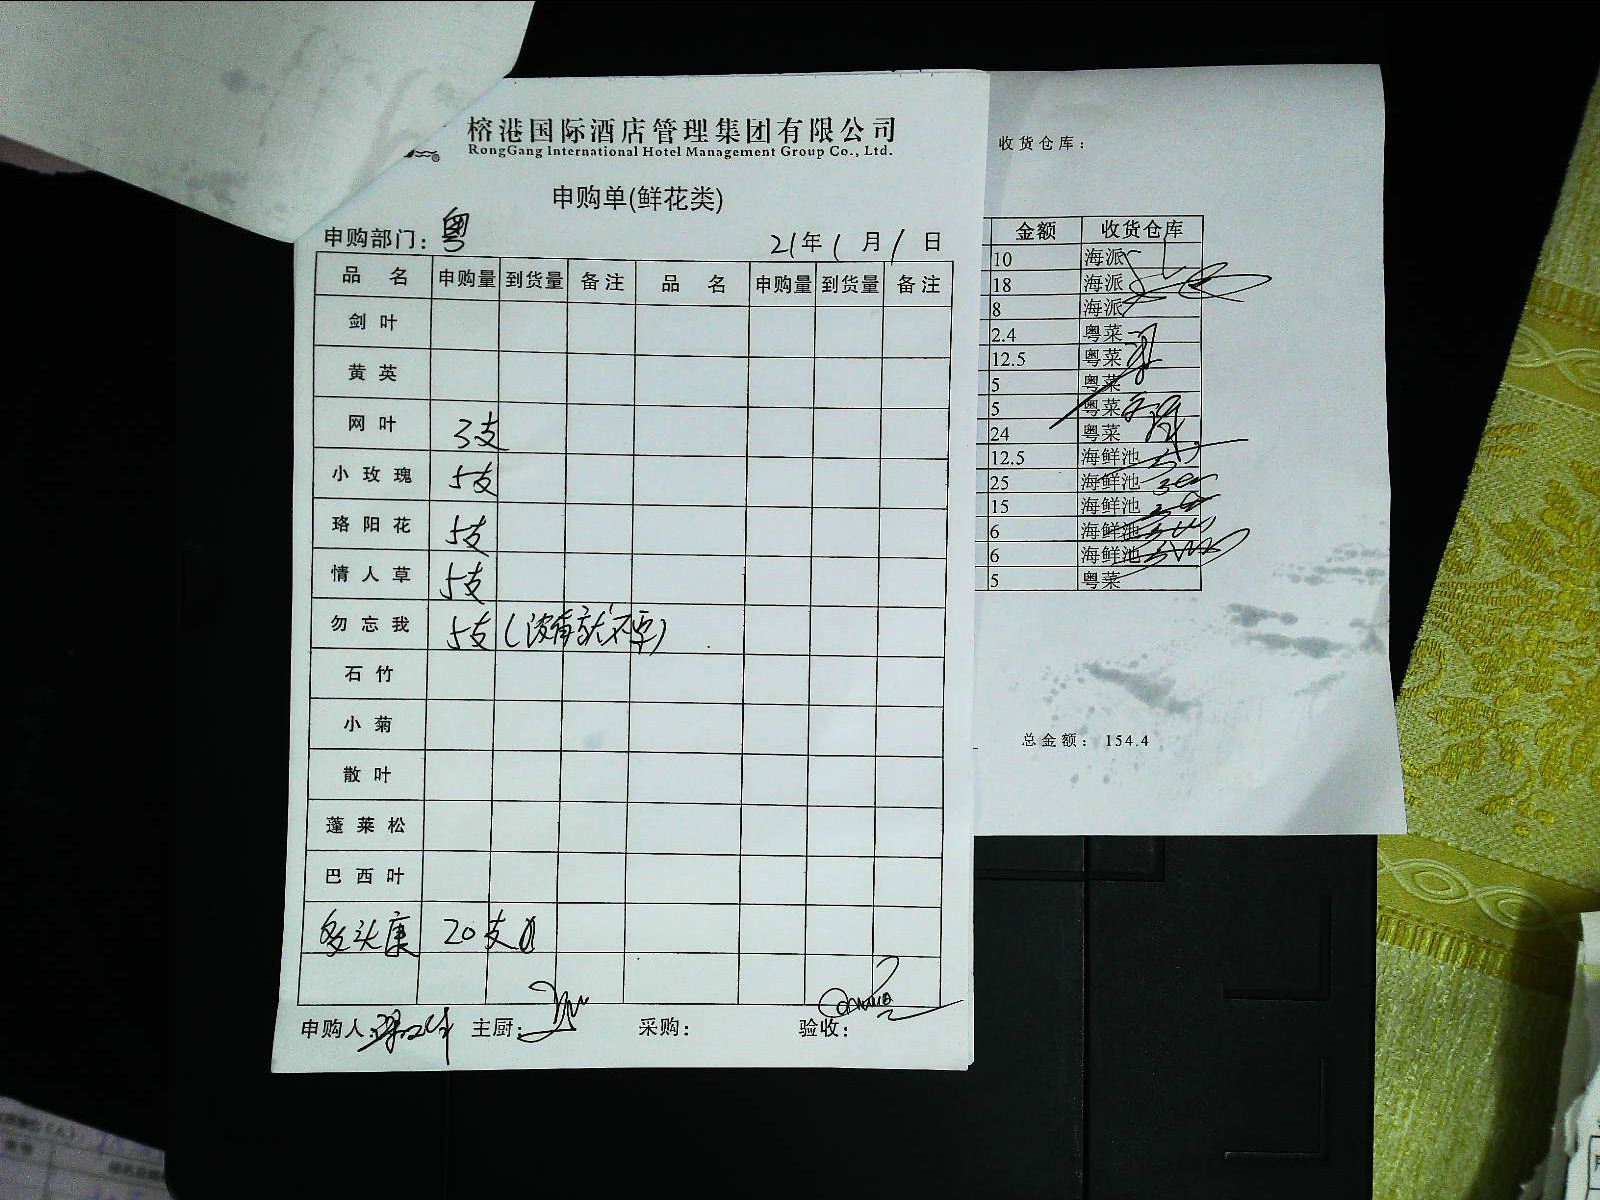 榕港国际酒店管理集团有限公司
RongGang International Hotel Management Group Co., Ltd.
申购单(鲜花类)
申购部门: 粤 21年 1月 1日
品名 申购量 到货量 备注 品名 申购量 到货量 备注
剑叶
黄英
网叶 3支
小玫瑰 5支
珞阳花 5支
情人草 5支
勿忘我 5支 (没有就不要)
石竹
小菊
散叶
蓬莱松
巴西叶
多头康 20支
申购人: 主厨: 采购: 验收:
收货仓库:
金额 收货仓库
10 海派
18 海派
8 海派
2.4 粤菜
12.5 粤菜
5 粤菜
5 粤菜
24 粤菜
12.5 海鲜池
25 海鲜池
15 海鲜池
6 海鲜池
6 海鲜池
5 粤菜
总金额: 154.4